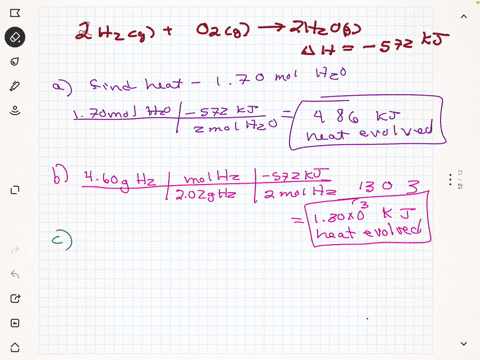 2H2(g) + O2(g) → 2H2O(g)
ΔH = -572 kJ
a) find heat - 1.70 mol H2O
1.70 mol H2O | -572 kJ = 486 kJ
2 mol H2O heat evolved
b) 4.60g H2 | mol H2 | -572 kJ
2.02g H2 | 2 mol H2 1303
= 1.30x10^3 kJ
heat evolved
c)